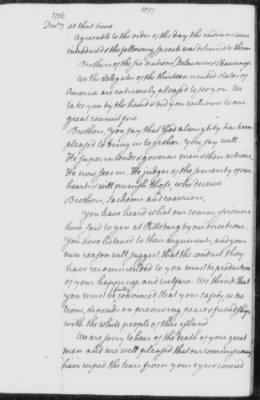 1776
Decr 7 at that time.
Agreeable to the order of the day the indians were
introduced & the following speech was delivered to them
Brothers of the six nations, Delawares & Shawanese
We the delegates of the thirteen united states of
America are extremely pleased to see you. We
take you by the hand & bid you welcome to our
great council fire.
Brothers, You say that God almighty has been
pleased to bring us together. You say well.
He superintends & governs men & their actions.
He now sees us. He judges of the sincerity of our
hearts & will punish those, who deceive.
Brothers, Sachems and warriors,
You have heard what our commissioners
have said to you at Pittsburg by our direction.
You have listened to their arguments, and your
own reason will suggest that the conduct they
have recommended to you must be productive
of your happiness and welfare. We think that
you must be fully convinced that your safety, as na
tions, depends on preserving peace & friendship
with the white people of this island.
We are sorry to hear of the death of your great
men and we well pleased that our commissioners
have wiped the tears from your eyes & covered